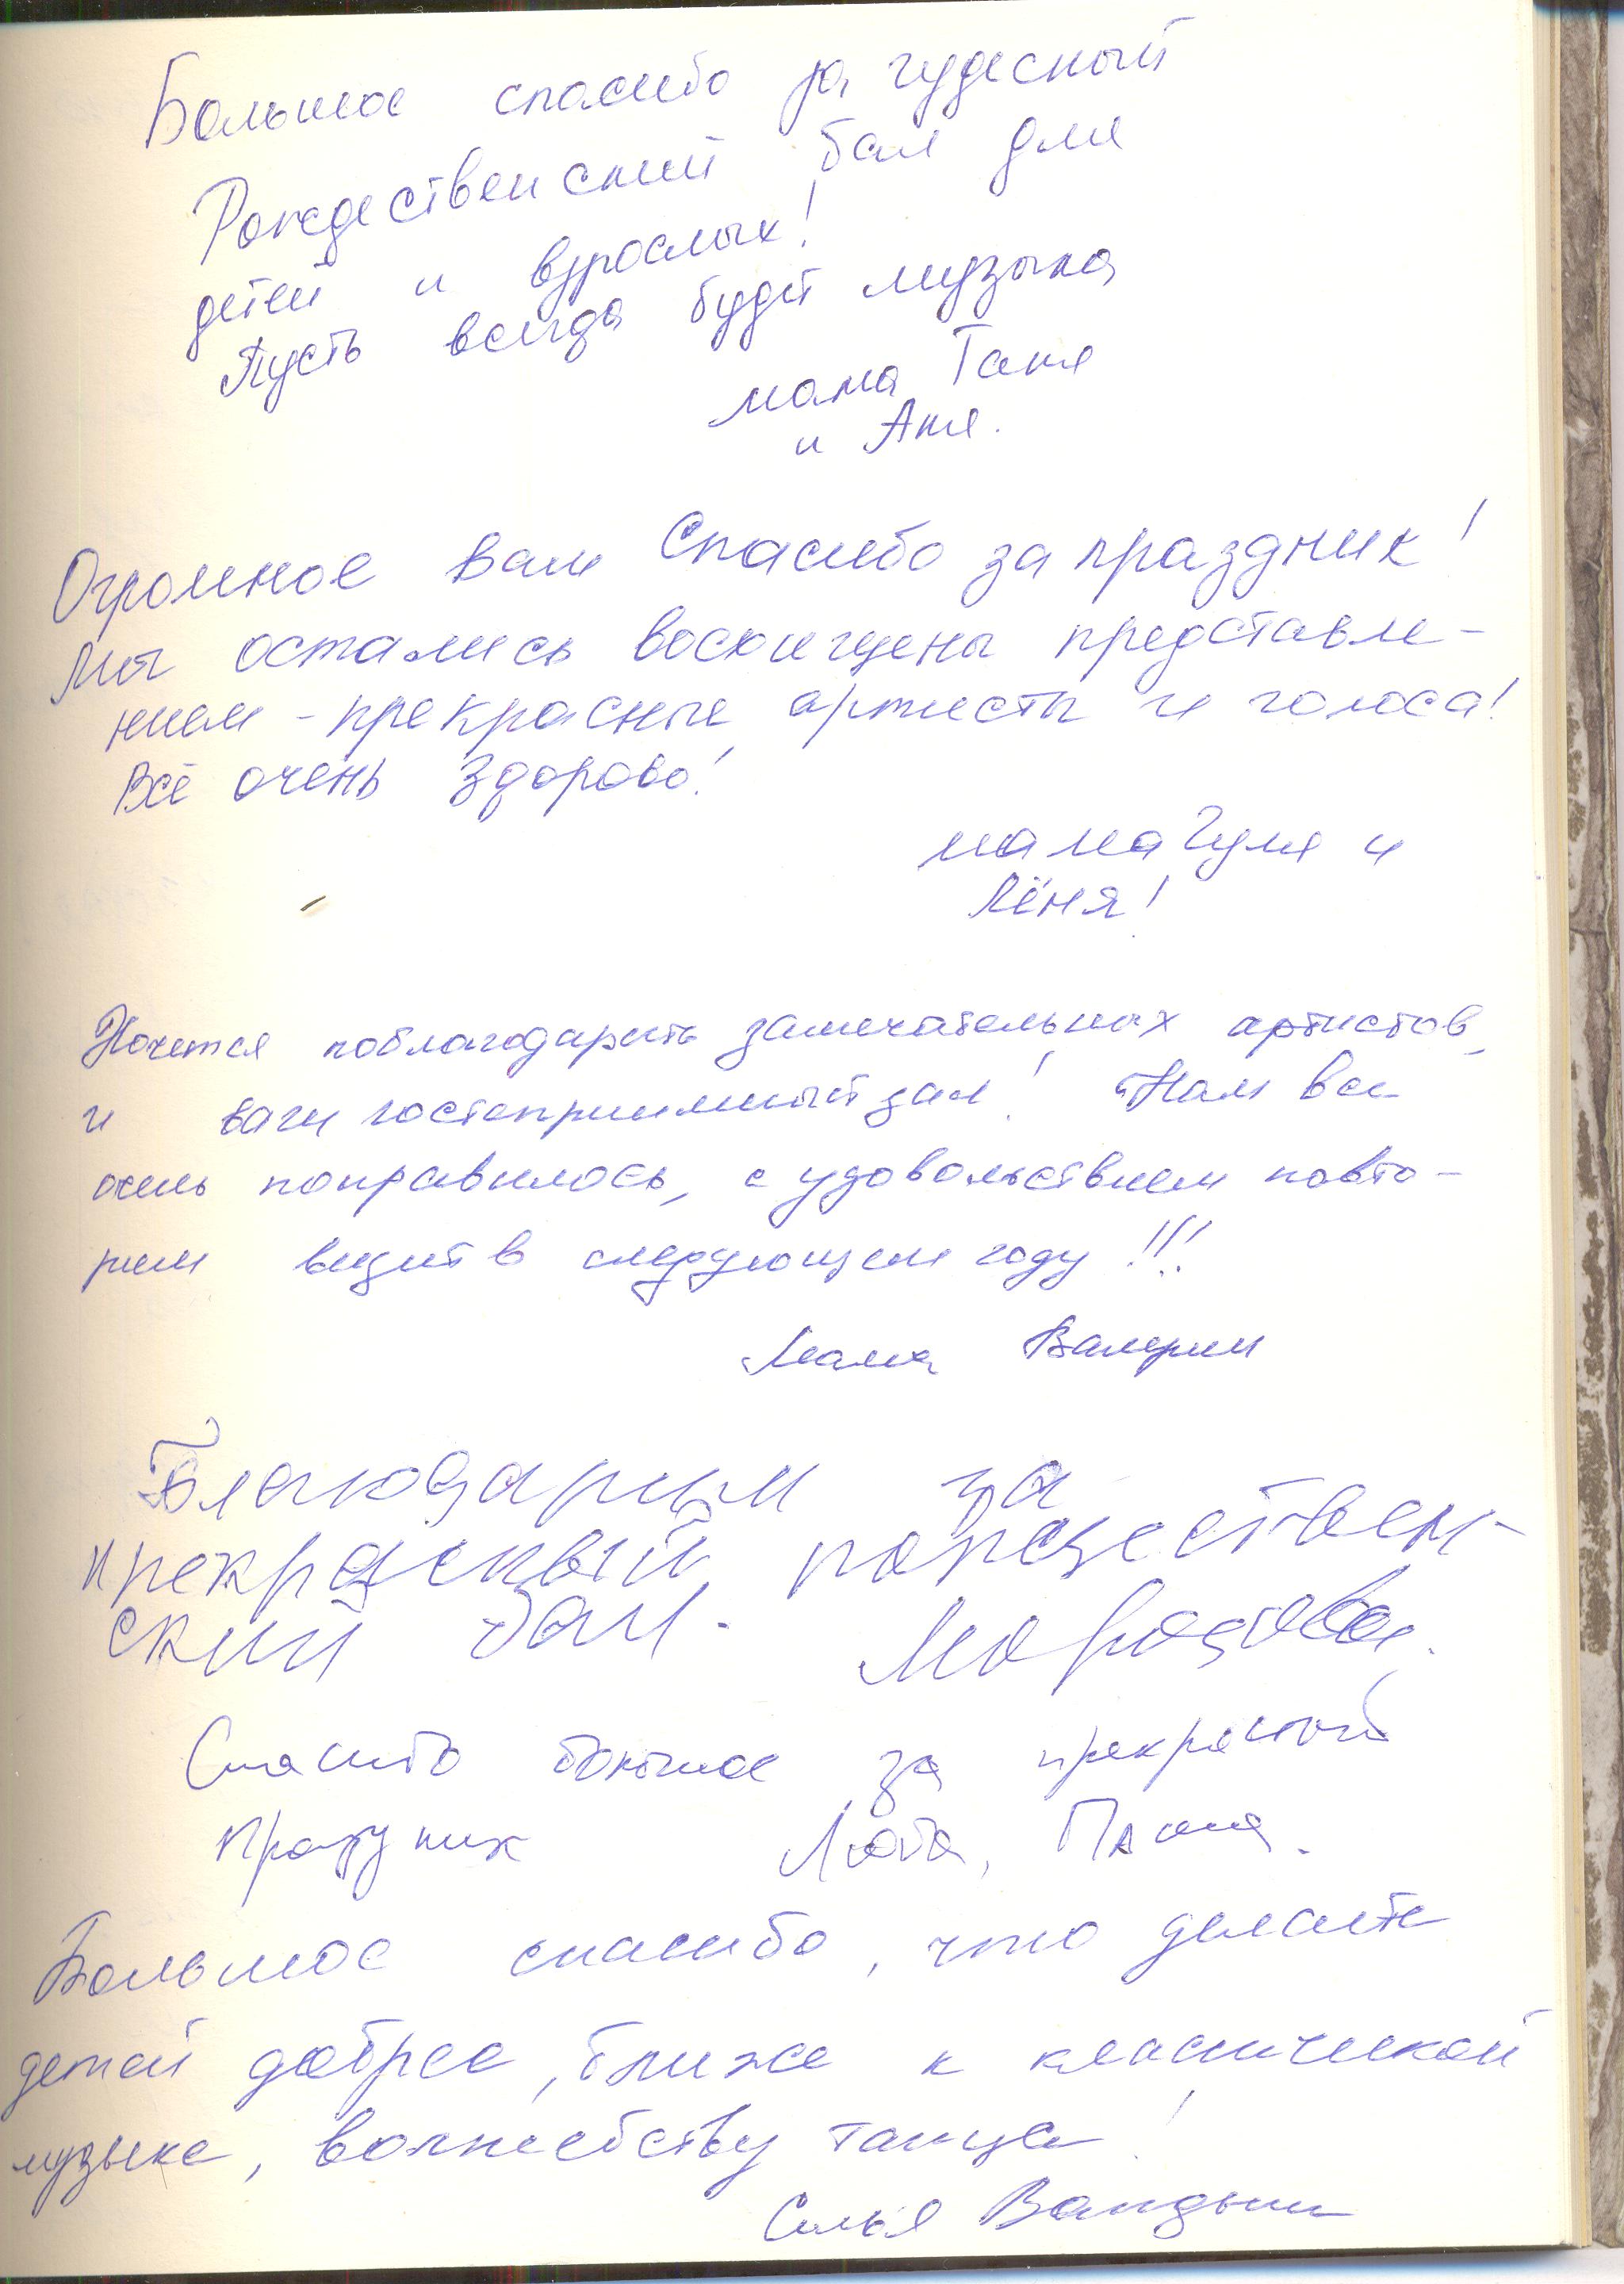 Большое спасибо за чудесный
Рождественский бал для
детей и взрослых!
Пусть всегда будет музыка
мама Таня
и Аня.
Огромное Вам Спасибо за праздник!
Мы остались восхищены представле-
нием - прекрасные артисты и голоса!
Всё очень здорово!
мама Гуля и
Лёня!
Хочется поблагодарить замечательных артистов,
и ваш гостеприимный зал! Нам все
очень понравилось, с удовольствием повто-
рим визит в следующем году!!!
Мама Валерии
Благодарим за
прекрасный рождествен-
ский бал.
Спасибо большое за прекрасный
Праздник Люба,
Большое спасибо, что делаете
детей добрее, ближе к классической
музыке, волшебству танца!
Семья